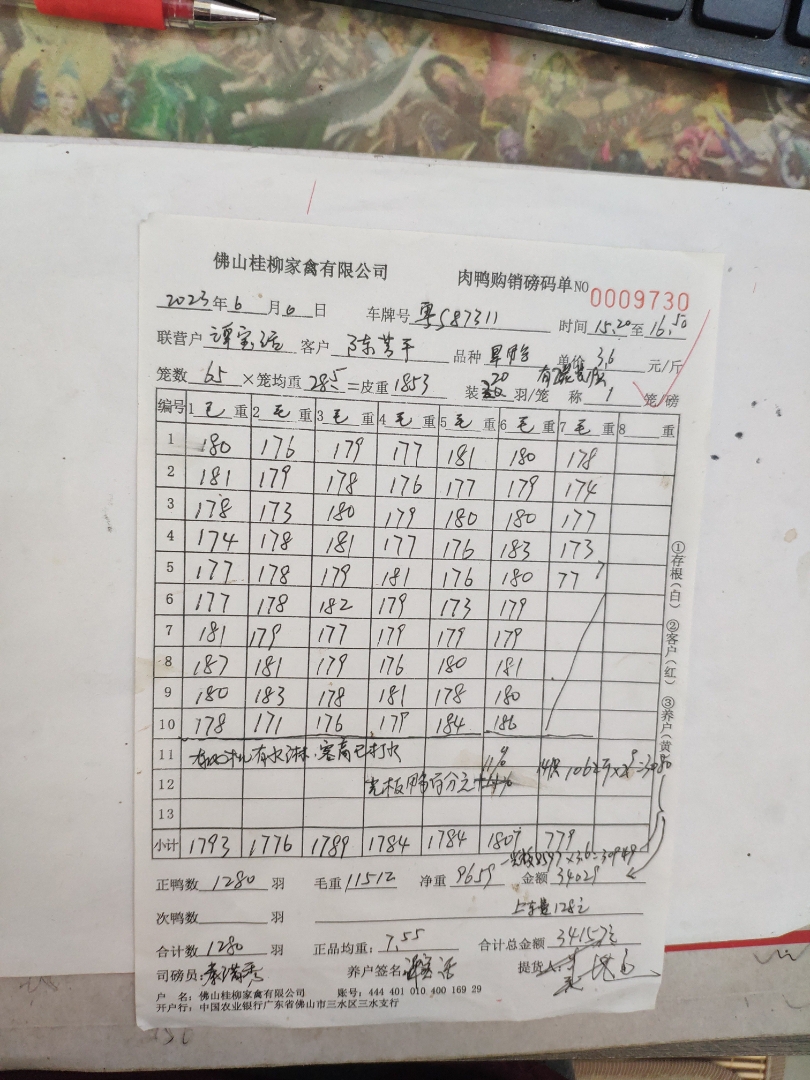 佛山桂柳家禽有限公司 肉鸭购销磅码单 NO 0009730
2023年6月6日 车牌号 粤S87311 时间 15.20至16.50
联营户 谭宝活 客户 陈 平 品种 单价 3.6 元/斤
笼数 65 ×笼均重 28.5 =皮重 1853 装 20 羽/笼 称 1 笼/磅
编号 1 毛 重 2 毛 重 3 毛 重 4 毛 重 5 毛 重 6 毛 重 7 毛 重 8 重
1 180 176 179 177 181 180 178
2 181 179 178 176 177 179 174
3 178 173 180 179 180 180 177
4 174 178 181 177 176 183 173
5 177 178 179 181 176 180 77
6 177 178 182 179 173 179
7 181 179 177 179 179 179
8 187 181 179 176 180 181
9 180 183 178 181 178 180
10 178 171 176 177 184 186
11 有水淋
12 11%
13
小计 1793 1776 1789 1784 1784 1807 779
正鸭数 1280 羽 毛重 11512 净重 9659 金额 34029
次鸭数 羽 128元
合计数 1280 羽 正品均重: 7.55 合计总金额 34157元
司磅员: 养户签名: 提货人:
户 名: 佛山桂柳家禽有限公司 账号: 444 401 010 400 169 29
开户行: 中国农业银行广东省佛山市三水区三水支行
①存根(白) ②客户(红) ③养户(黄